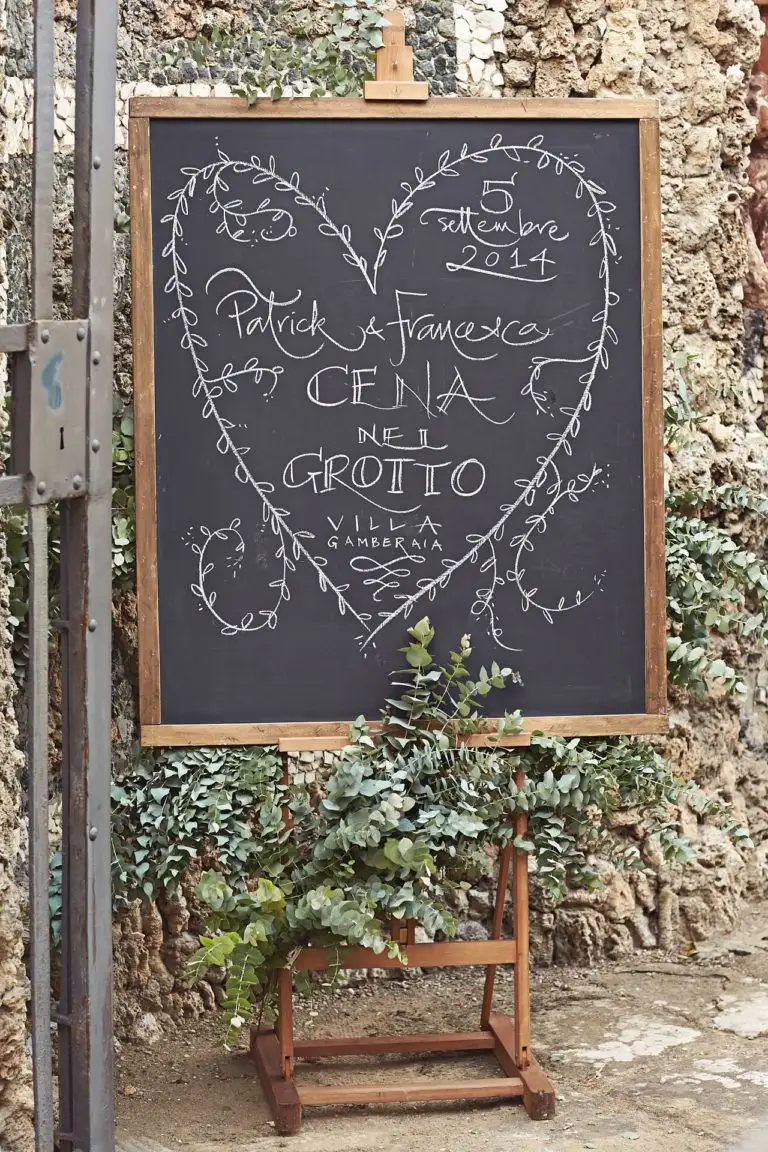 5
settembre
2014
Patrick & Francesca
CENA
NEL
GROTTO
VILLA
GAMBERAIA